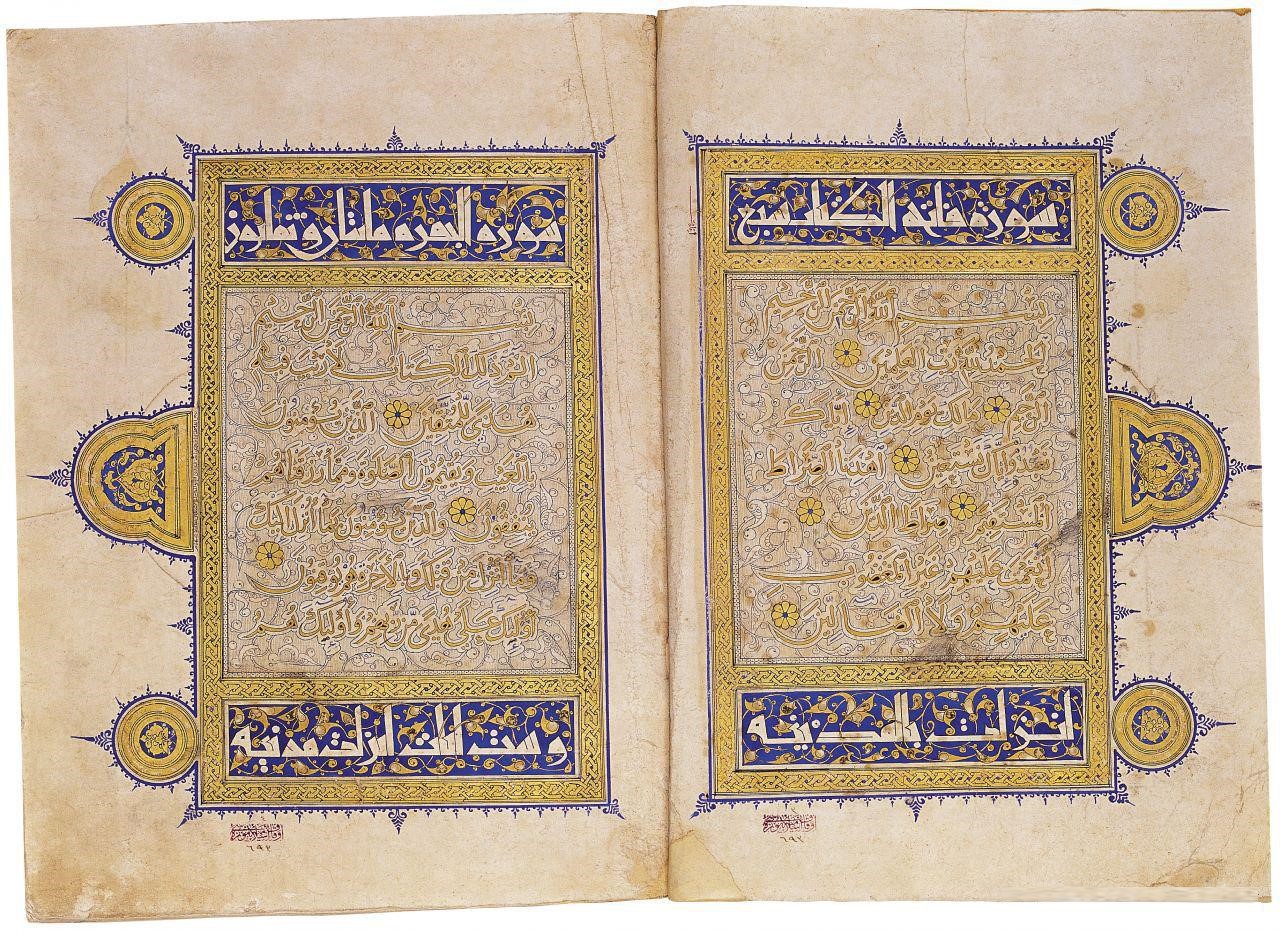 سورة فاتحة الكتاب سبع
بسم الله الرحمن الرحيم
الحمد لله رب العلمين الرحمن
الرحيم ملك يوم الدين إياك
نعبد وإياك نستعين اهدنا الصراط
المستقيم صراط الذين
أنعمت عليهم غير المغضوب
عليهم ولا الضالين
انزلت بالمدينة
سورة البقرة مائتان وثمانون
بسم الله الرحمن الرحيم
الم ذلك الكتاب لا ريب فيه
هدى للمتقين الذين يؤمنون
بالغيب ويقيمون الصلوة ومما رزقناهم
ينفقون والذين يؤمنون بما أنزل إليك
وما أنزل من قبلك وبالآخرة هم يوقنون
أولئك على هدى من ربهم وأولئك هم
وست ايات انزلت مدنية
٦٩٢
٦٩٢